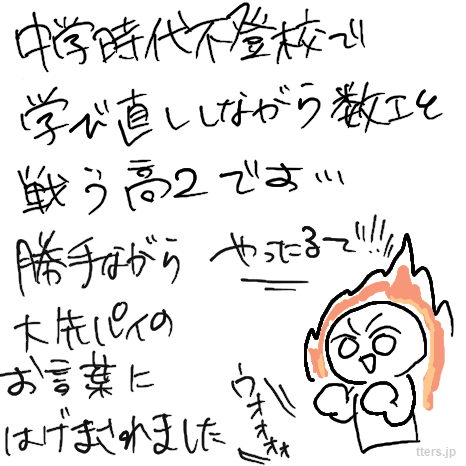 中学時代不登校で
学び直ししながら数Iと
戦う高2です…
勝手ながら
やったるで!!!
大先パイの
お言葉に
はげまされました
ウオォォォ
tters.jp